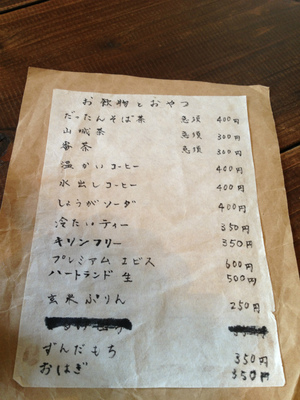 お飲物とおやつ
だったんそば茶 急須 400円
山城茶 急須 300円
番茶 急須 300円
温かいコーヒー 400円
水出しコーヒー 400円
しょうがソーダ 400円
冷たいティー 350円
キリンフリー 350円
プレミアム エビス 600円
ハートランド 生 500円
玄米ぷりん 250円
ずんだもち 350円
おはぎ 350円